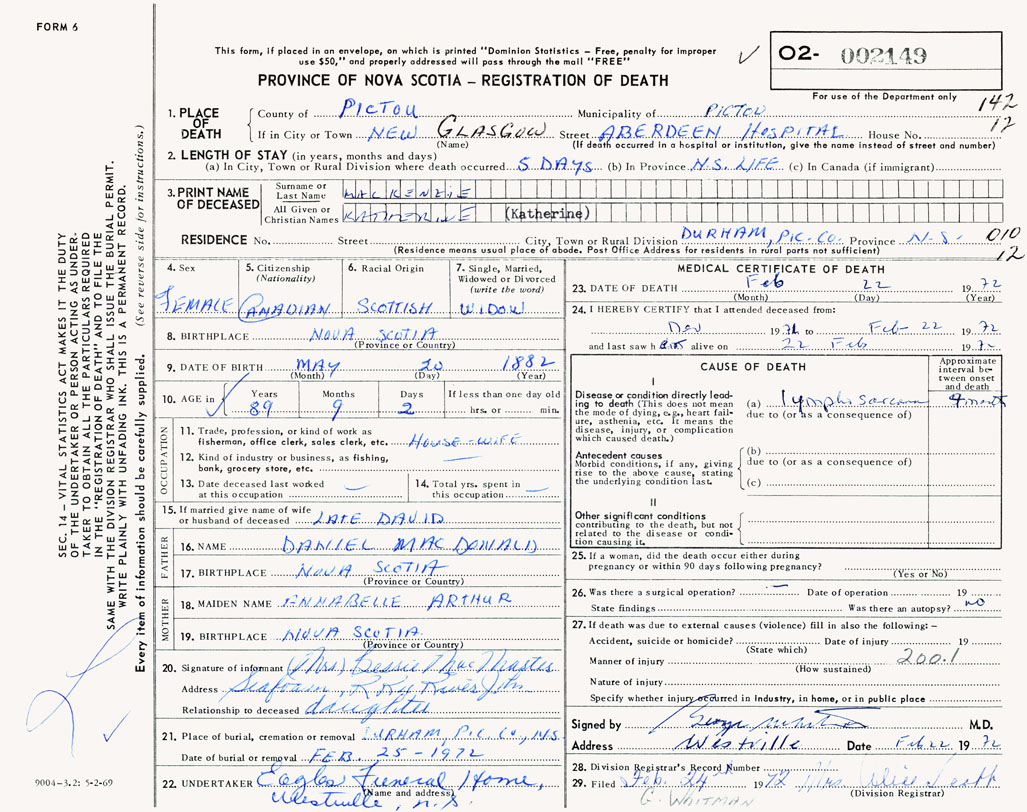 FORM 6
This form, if placed in an envelope, on which is printed "Dominion Statistics – Free, penalty for improper
use $50," and properly addressed will pass through the mail "FREE"
PROVINCE OF NOVA SCOTIA – REGISTRATION OF DEATH
O2- 002149
For use of the Department only
142
12
1. PLACE OF DEATH County of PICTOU Municipality of PICTOU
If in City or Town NEW GLASGOW Street ABERDEEN HOSPITAL House No.
(Name) (If death occurred in a hospital or institution, give the name instead of street and number)
2. LENGTH OF STAY (in years, months and days)
(a) In City, Town or Rural Division where death occurred 5 DAYS (b) In Province N.S. LIFE (c) In Canada (if immigrant)
3. PRINT NAME OF DECEASED Surname or Last Name MACKENZIE
All Given or Christian Names KATHERINE (Katherine)
RESIDENCE No. Street City, Town or Rural Division DURHAM, PIC. CO. Province N.S. 010
(Residence means usual place of abode. Post Office Address for residents in rural parts not sufficient) 12
4. Sex FEMALE
5. Citizenship (Nationality) CANADIAN
6. Racial Origin SCOTTISH
7. Single, Married, Widowed or Divorced (write the word) WIDOW
8. BIRTHPLACE NOVA SCOTIA
(Province or Country)
9. DATE OF BIRTH MAY 20 1882
(Month) (Day) (Year)
10. AGE in Years Months Days If less than one day old
89 9 2 hrs. or min.
OCCUPATION
11. Trade, profession, or kind of work as
fisherman, office clerk, sales clerk, etc. HOUSE-WIFE
12. Kind of industry or business, as fishing,
bank, grocery store, etc.
13. Date deceased last worked
at this occupation
14. Total yrs. spent in
this occupation
15. If married give name of wife
or husband of deceased LATE DAVID
FATHER
16. NAME DANIEL MAC DONALD
17. BIRTHPLACE NOVA SCOTIA
(Province or Country)
MOTHER
18. MAIDEN NAME ANNABELLE ARTHUR
19. BIRTHPLACE NOVA SCOTIA
(Province or Country)
20. Signature of informant (Mrs) Bessie MacMaster
Address Seafoam, R R#4 River Jhn
Relationship to deceased daughter
21. Place of burial, cremation or removal DURHAM, PIC. CO., N.S.
Date of burial or removal FEB. 25-1972
22. UNDERTAKER Eagles Funeral Home,
(Name and address)
Westville, N.S.
MEDICAL CERTIFICATE OF DEATH
23. DATE OF DEATH Feb 22 1972
(Month) (Day) (Year)
24. I HEREBY CERTIFY that I attended deceased from:
Nov 1971 to Feb 22 1972
and last saw h alive on 22 Feb 1972
CAUSE OF DEATH
Approximate interval between onset and death
I
Disease or condition directly leading to death (This does not mean the mode of dying, e.g., heart failure, asthenia, etc. It means the disease, injury, or complication which caused death.)
(a) lympho sarcoma
due to (or as a consequence of)
Antecedent causes
Morbid conditions, if any, giving rise to the above cause, stating the underlying condition last.
(b)
due to (or as a consequence of)
(c)
II
Other significant conditions
contributing to the death, but not related to the disease or condition causing it.
25. If a woman, did the death occur either during
pregnancy or within 90 days following pregnancy?
(Yes or No)
26. Was there a surgical operation? Date of operation 19
State findings Was there an autopsy? no
27. If death was due to external causes (violence) fill in also the following: –
Accident, suicide or homicide? Date of injury 19
(State which)
Manner of injury 200.1
(How sustained)
Nature of injury
Specify whether injury occurred in Industry, in home, or in public place
Signed by M.D.
Address Westville Date Feb 22 1972
28. Division Registrar's Record Number
29. Filed Feb. 24th 1972 Mrs. Alice
G. WHITMAN (Division Registrar)
SEC. 14 – VITAL STATISTICS ACT MAKES IT THE DUTY
OF THE UNDERTAKER OR PERSON ACTING AS UNDER-
TAKER TO OBTAIN ALL THE PARTICULARS REQUIRED
IN THE "REGISTRATION OF DEATH" AND TO FILE THE
SAME WITH THE DIVISION REGISTRAR WHO SHALL ISSUE THE BURIAL PERMIT.
WRITE PLAINLY WITH UNFADING INK. THIS IS A PERMANENT RECORD.
Every item of information should be carefully supplied. (See reverse side for instructions.)
9004-3.2: 5-2-69